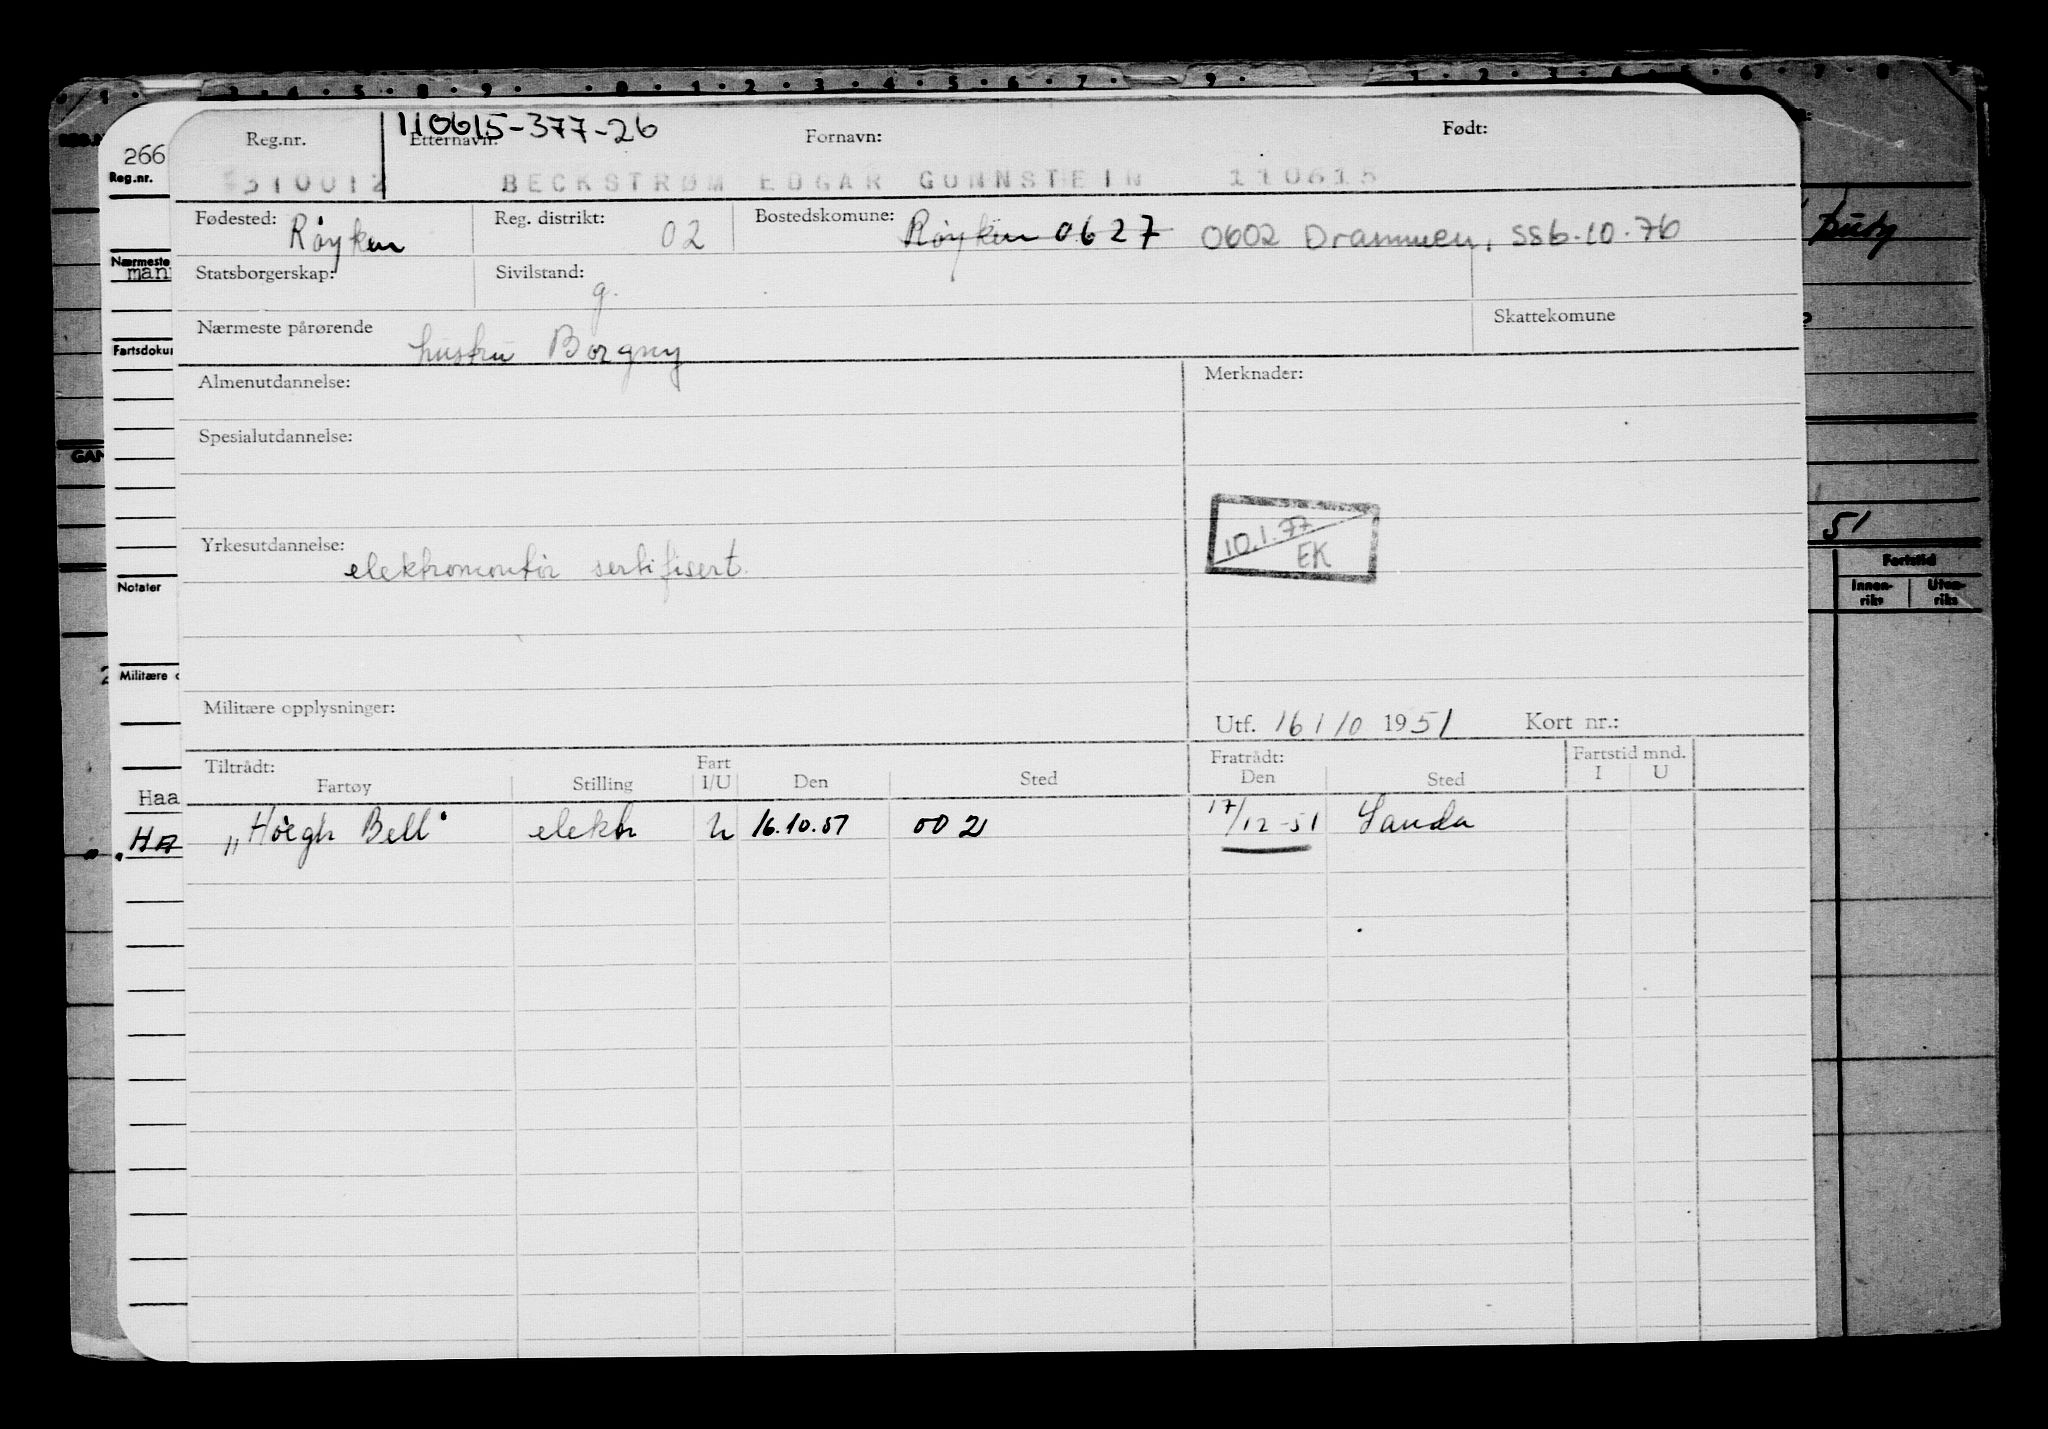 110615-377-26
Reg.nr. Etternavn: Fornavn: Født:
310012 BECKSTRØM EDGAR GUNNSTEIN 110615
Fødested: Røyken Reg. distrikt: 02 Bostedskomune: Røyken 0627 0602 Drammen, SSB.10.76
Statsborgerskap: Sivilstand: g.
Nærmeste pårørende hustru Borgny Skattekomune
Almenutdannelse: Merknader:
Spesialutdannelse:
10.1.77
EK
Yrkesutdannelse: elektromontør sertifisert
Militære opplysninger: Utf. 16/10 1951 Kort nr.:
Tiltrådt: Fart Fratrådt: Fartstid mnd.
Fartøy Stilling I/U Den Sted Den Sted I U
„Høegh Bell" elektr U 16.10.51 002 17/12-51 Sauda
266
Reg.nr.
Nærmeste
man
Fartsdokur
Notater
Militære o
Haa
HA
GAN
51
Fartstid
Innen-
riks
Uten-
riks